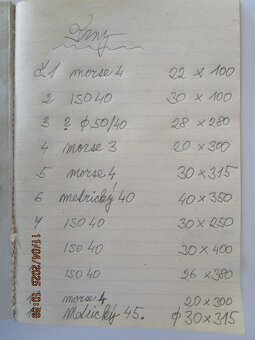 Trny
č.1 morse 4 22 x 100
2 ISO 40 30 x 100
3 ? φ 50/40 28 x 280
4 morse 3 20 x 300
5 morse 4 30 x 315
6 metrický 40 40 x 350
7 ISO 40 30 x 250
ISO 40 30 x 400
ISO 40 26 x 380
morse 4 20 x 300
Metrický 45. φ 30 x 315
11/04/2025